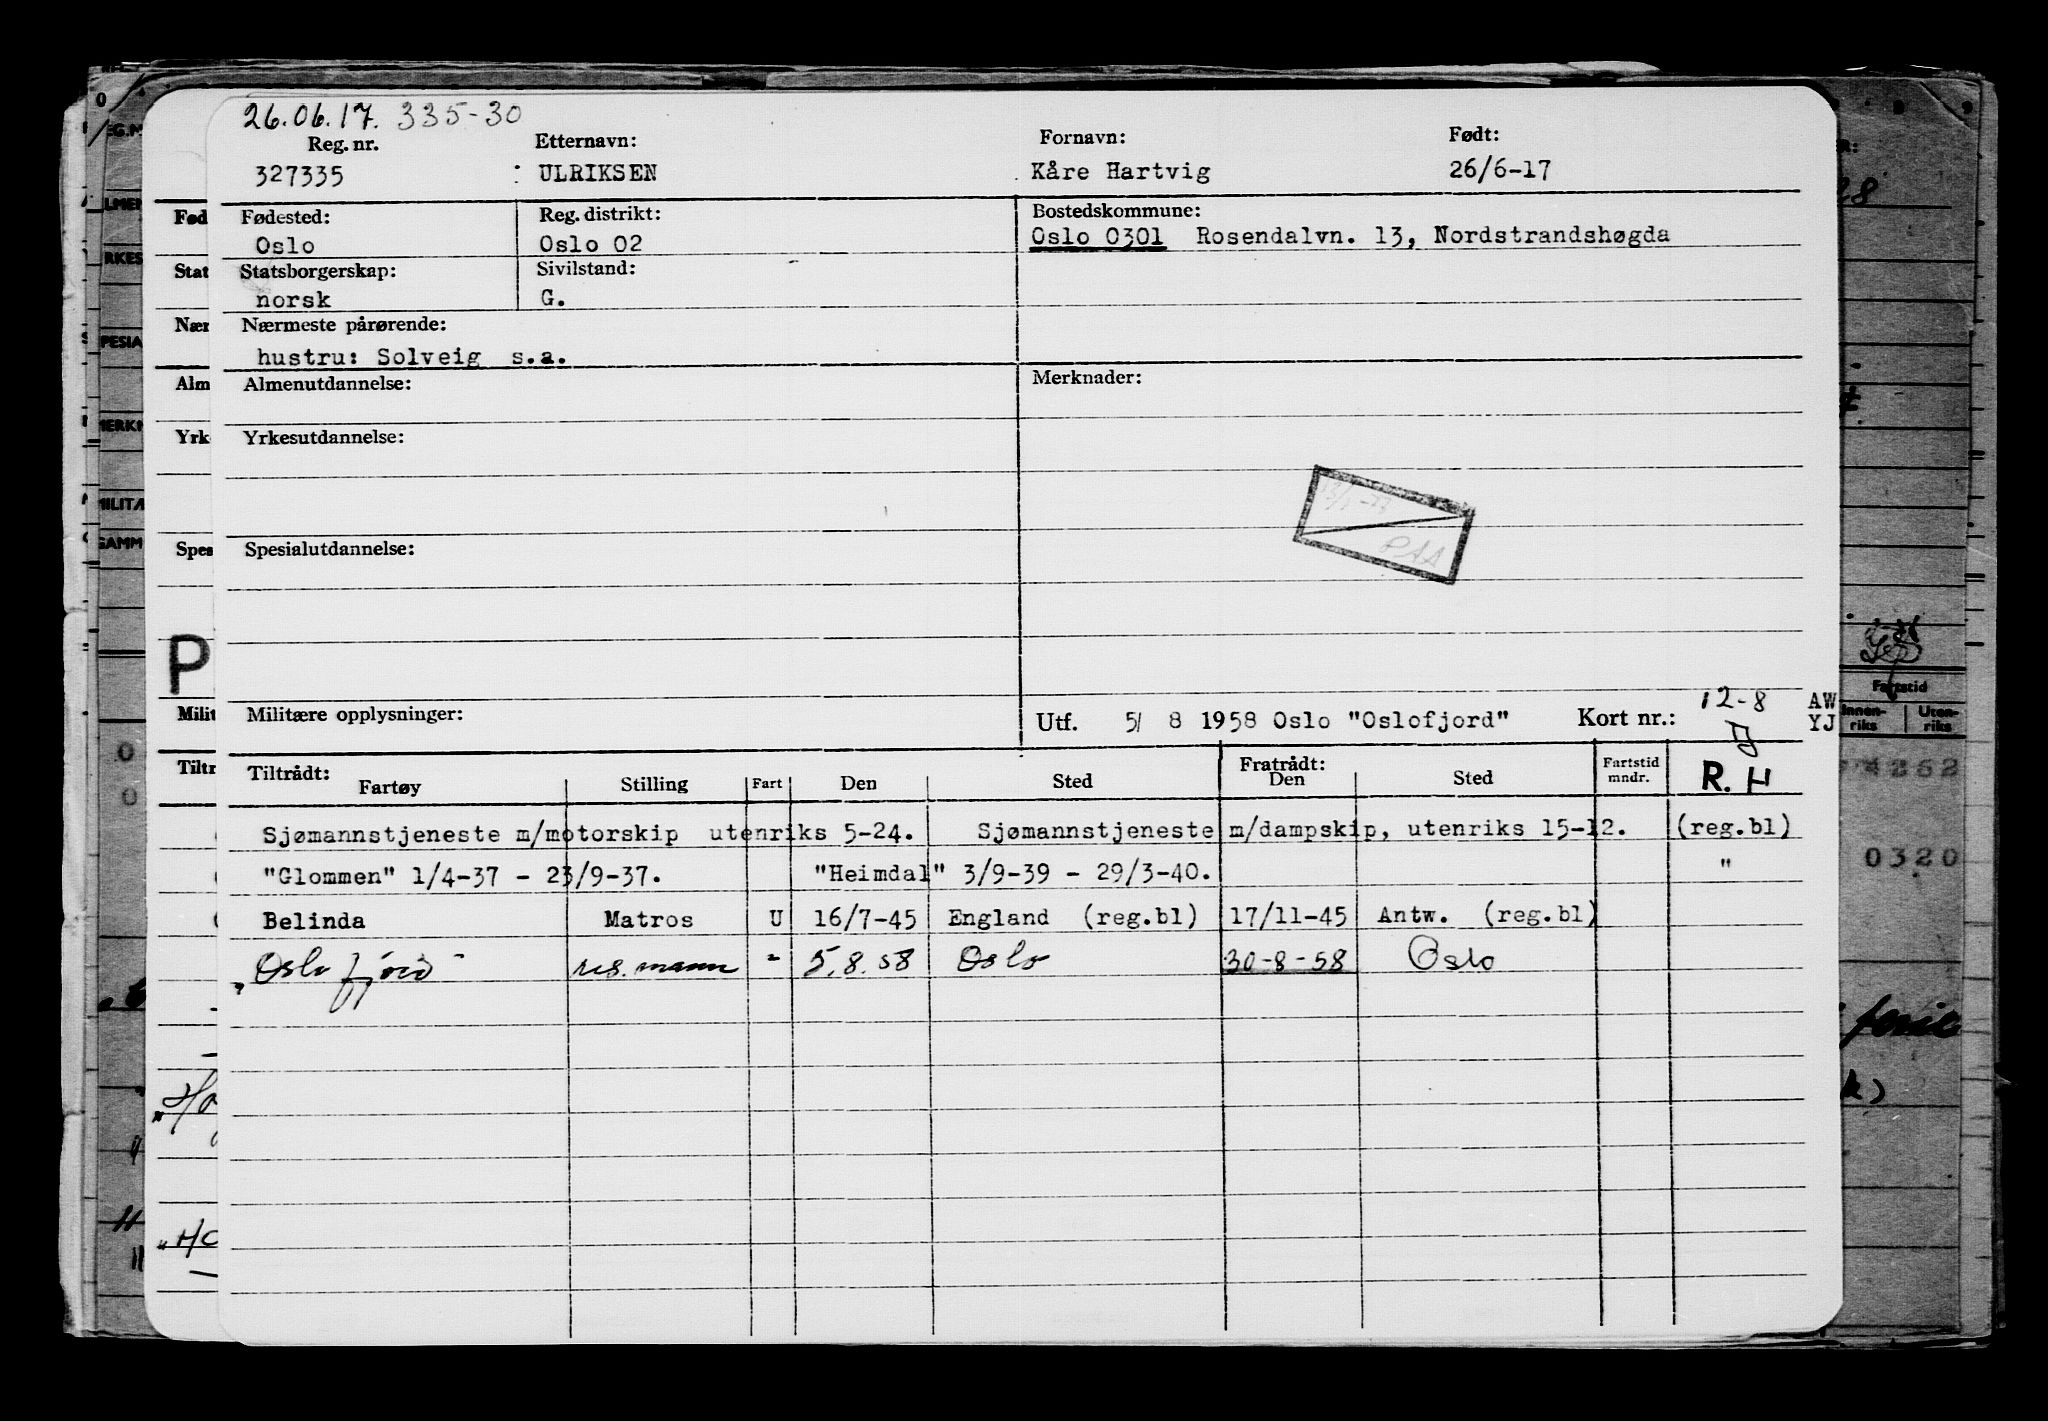 26.06.17. 335-30
Reg. nr. Etternavn: Fornavn: Født:
327335 : ULRIKSEN Kåre Hartvig 26/6-17
Fød Fødested: Reg. distrikt: Bostedskommune:
Oslo Oslo 02 Oslo 0301 Rosendalvn. 13, Nordstrandshøgda
Stat Statsborgerskap: Sivilstand:
norsk G.
Nær Nærmeste pårørende:
hustru: Solveig s.a.
Alm Almenutdannelse: Merknader:
Yrk Yrkesutdannelse:
PAA
Spes Spesialutdannelse:
P
Milit Militære opplysninger: Utf. 5/ 8 1958 Oslo "Oslofjord" Kort nr.: 12-8 AW
YJ
Tiltr Tiltrådt: Fratrådt: Fartstid
Fartøy Stilling Fart Den Sted Den Sted mndr. R. H
Sjømannstjeneste m/motorskip utenriks 5-24. Sjømannstjeneste m/dampskip, utenriks 15-12. (reg.bl)
"Glommen" 1/4-37 - 23/9-37. "Heimdal" 3/9-39 - 29/3-40. "
Belinda Matros U 16/7-45 England (reg.bl) 17/11-45 Antw. (reg.bl)
"Oslofjord" res. mann " 5.8.58 Oslo 30-8-58 Oslo
Fartstid
Innen-riks Uten-riks
4262
0320